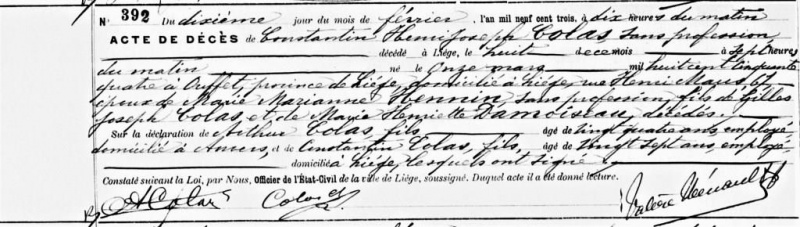 N° 392 Du dixième jour du mois de février, l'an mil neuf cent trois, à dix heures du matin
ACTE DE DÉCÈS de Constantin Henri Joseph Colas sans profession
décédé à Liége, le huit de ce mois à sept heures
du matin né le onze mars mil huit cent cinquante
quatre à Ouffet, province de Liége, domicilié à Liége, rue Henri Maus, 67
époux de Marie Marianne Hennin, sans profession, fils de Gilles
Joseph Colas, et de Marie Henriette Damoiseau, décédés.
Sur la déclaration de Arthur Colas, fils, âgé de vingt quatre ans, employé,
domicilié à Anvers, et de Constantin Colas, fils, âgé de vingt sept ans, employé
domicilié à Liége, lesquels ont signé.
Constaté suivant la Loi, par Nous, Officier de l'État-Civil de la ville de Liége, soussigné. Duquel acte il a été donné lecture.
A Colas Colas